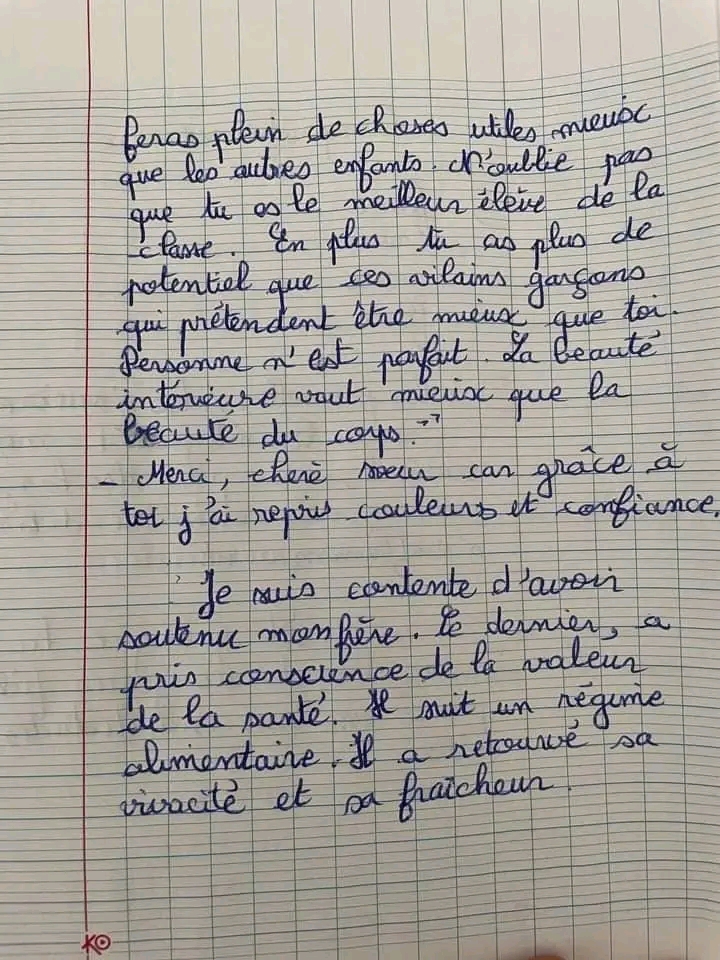 feras plein de choses utiles mieux
que les autres enfants. N'oublie pas
que tu es le meilleur élève de la
classe. En plus tu as plus de
potentiel que ces vilains garçons
qui prétendent être mieux que toi.
Personne n'est parfait. La beauté
intérieure vaut mieux que la
beauté du corps."
- Merci, chère sœur car grâce à
toi j'ai repris couleurs et confiance.
Je suis contente d'avoir
soutenu mon frère. Ce dernier, a
pris conscience de la valeur
de la santé. Il suit un régime
alimentaire. Il a retrouvé sa
vivacité et sa fraîcheur.
KO